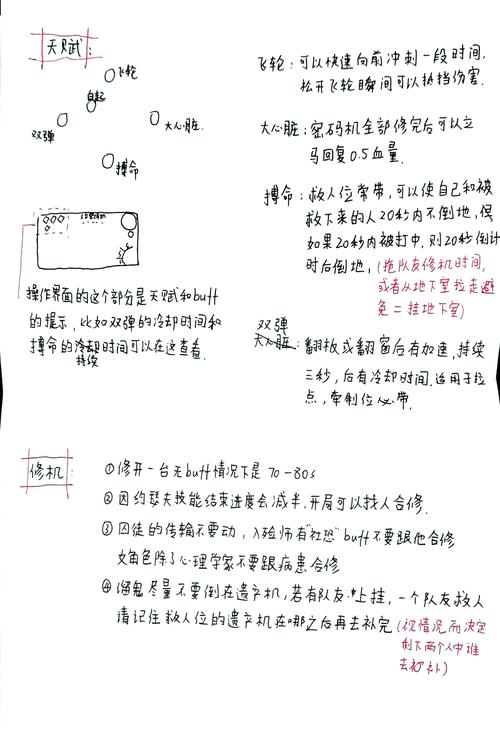 天赋:
飞轮
自起
双弹
大心脏.
搏命
操作界面的这个部分是天赋和buff
的提示,比如双弹的冷却时间和
搏命的冷却时间可以在这查看.
持续
飞轮:可以快速向前冲刺一段时间,
松开飞轮瞬间可以抵挡伤害.
大心脏:密码机全部修完后可以立
马回复0.5血量.
搏命:救人位常带,可以使自己和被
救下来的人20秒内不倒地,但
如果20秒内被打中,则20秒倒计
时后倒地,(拖队友修机时间,
或者从地下室拉走避
免二挂地下室)
双弹
大心脏:翻板或翻窗后有加速,持续
三秒,后有冷却时间.适用于拉
点,牵制位必带.
修机:
①修开一台无buff情况下是70-80s
②因约瑟夫技能结束进度会减半,开局可以找人合修.
③囚徒的传输不要动,入殓师有"社恐"buff不要跟他合修
女角色除了心理学家不要跟病患合修
④溜鬼尽量不要倒在遗产机,若有队友上挂,一个队友救人
请记住救人位的遗产机在哪之后再去补完(视情况而决定
剩下两个人中谁
去补)